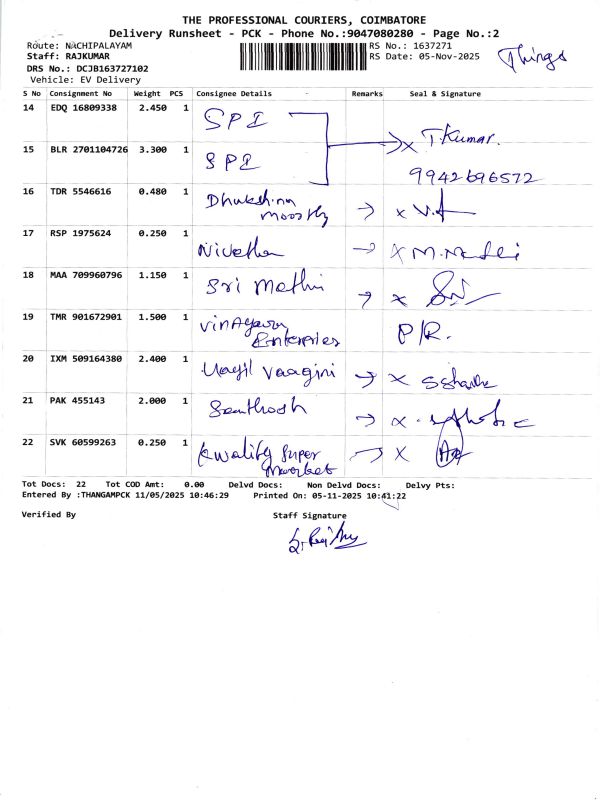 THE PROFESSIONAL COURIERS, COIMBATORE
Delivery Runsheet - PCK - Phone No.:9047080280 - Page No.:2
Route: NACHIPALAYAM RS No.: 1637271
Staff: RAJKUMAR RS Date: 05-Nov-2025 Things
DRS No.: DCJB163727102
Vehicle: EV Delivery
S No Consignment No Weight PCS Consignee Details Remarks Seal & Signature
14 EDQ 16809338 2.450 1 SPI
x T.Kumar.
15 BLR 2701104726 3.300 1 SPI
9942696572
16 TDR 5546616 0.480 1 x
17 RSP 1975624 0.250 1 Nivetha x
18 MAA 709960796 1.150 1 Sri Mathi x
19 TMR 901672901 1.500 1 P/R.
20 IXM 509164380 2.400 1 Uayil Vaagini x
21 PAK 455143 2.000 1 Santhosh x
22 SVK 60599263 0.250 1 Kwality Super x
Tot Docs: 22 Tot COD Amt: 0.00 Delvd Docs: Non Delvd Docs: Delvy Pts:
Entered By :THANGAMPCK 11/05/2025 10:46:29 Printed On: 05-11-2025 10:41:22
Verified By Staff Signature